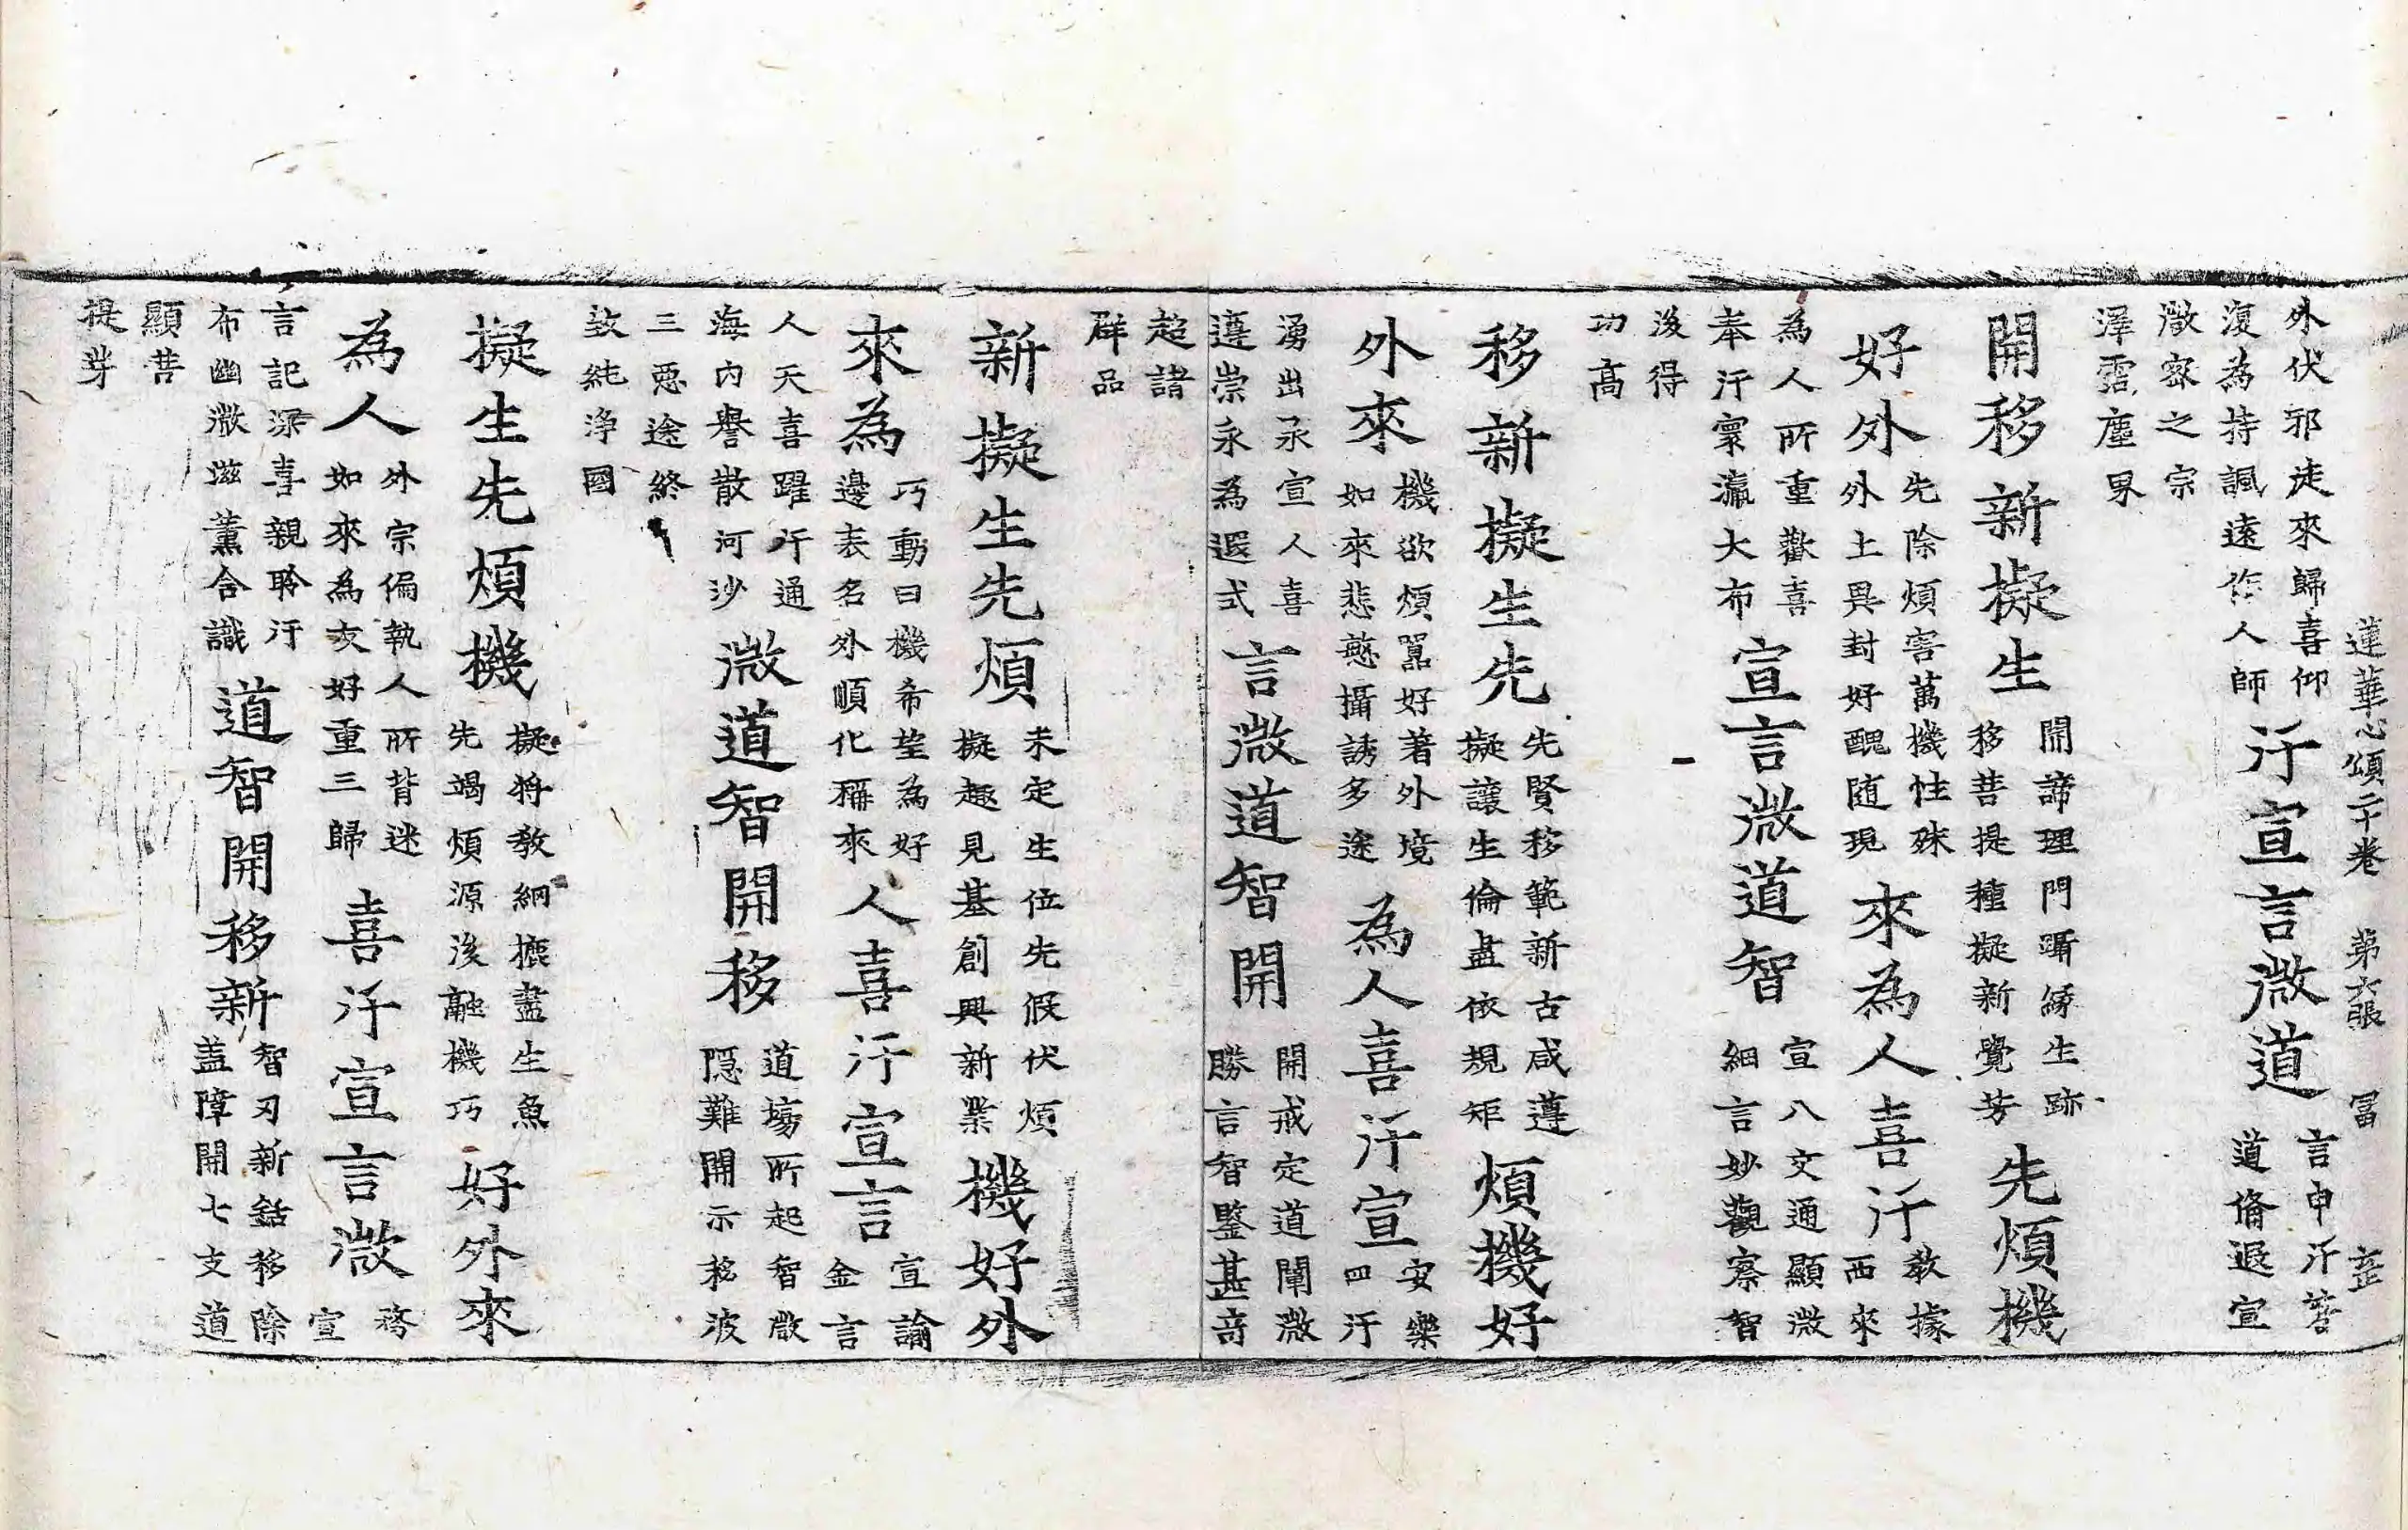 蓮華心頌二十卷　第六張　冨　㐧
外伏邪徒來歸喜仰
復為持諷遠作人師
汗宣言微道
言申汗善
道脩遐宣
微密之宗
澤霑塵界
開移新擬生
開諦理門躡緣生跡
移菩提種擬新覺芳
先煩機
好外
先除煩害萬機性殊
外土異封好醜随現
來為人喜汗
教據
西來
為人所重歡喜
奉汗寰瀛大布
宣言微道智
宣八文通顯微
細言妙觀察智
後得
功高
移新擬生先
先賢移範新古咸遵
擬讓生倫盡依規矩
煩機好
外來
機欲煩囂好著外境
如來悲愍攝誘多途
為人喜汗宣
安樂
四汗
湧出承宣人喜
遵崇永為遐式
言微道智開
開戒定道闡微
勝言智鑒甚奇
超諸
群品
新擬生先煩
未定生位先假伏煩
擬趣見基創興新業
機好外
來為
巧動曰機希望為好
邊表名外順化稱來
人喜汗宣言
宣諭
金言
人天喜躍汗通
海内譽散河沙
微道智開移
道塲所起智微
隠難開示移波
三惡途終
致純淨國
擬生先煩機
擬將教網攈盡生魚
先竭煩源後融機巧
好外來
為人
外宗偏執人所背迷
如來為友好重三歸
喜汗宣言微
宣
言記深喜親聆汗
布幽微滋薰含識
道智開移新
智刃新銛移除
盖障開七支道
顯菩
提芽